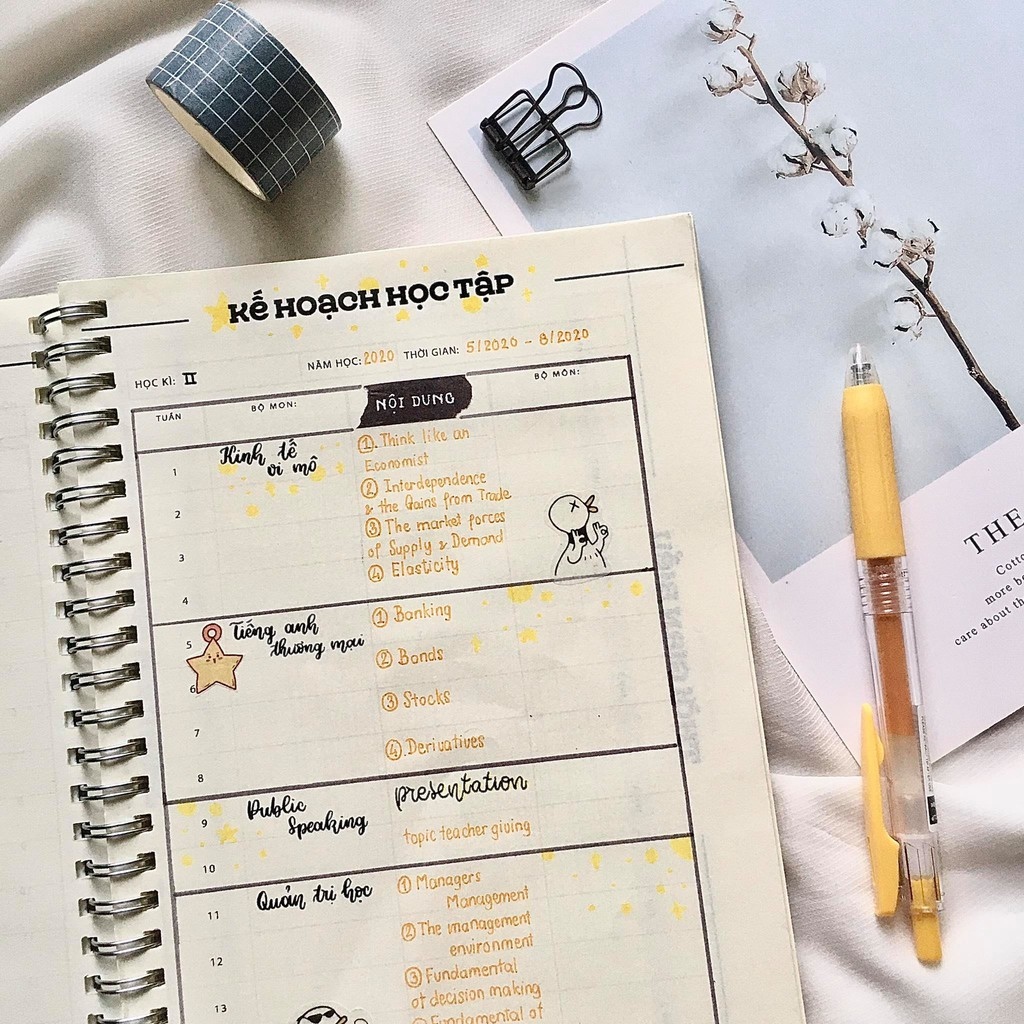 KẾ HOẠCH HỌC TẬP
NĂM HỌC: 2020 THỜI GIAN: 5/2020 - 8/2020
HỌC KÌ: II
TUẦN BỘ MON: NỘI DUNG BỘ MÔN:
1
2
3
4
Kinh tế
vi mô
①. Think like an
Economist
② Interdependence
& the Gains from Trade
③ The market forces
of Supply & Demand
④ Elasticity
5
6
7
8
Tiếng anh
thương mại
① Banking
② Bonds
③ Stocks
④. Derivatives
9
10
Public
Speaking
presentation
topic teacher giving
11
12
13
Quản trị học
① Managers
Management
② The management
environment
③ Fundamental
of decision making
Fundamental of
THE
Cotto
more be
care about th